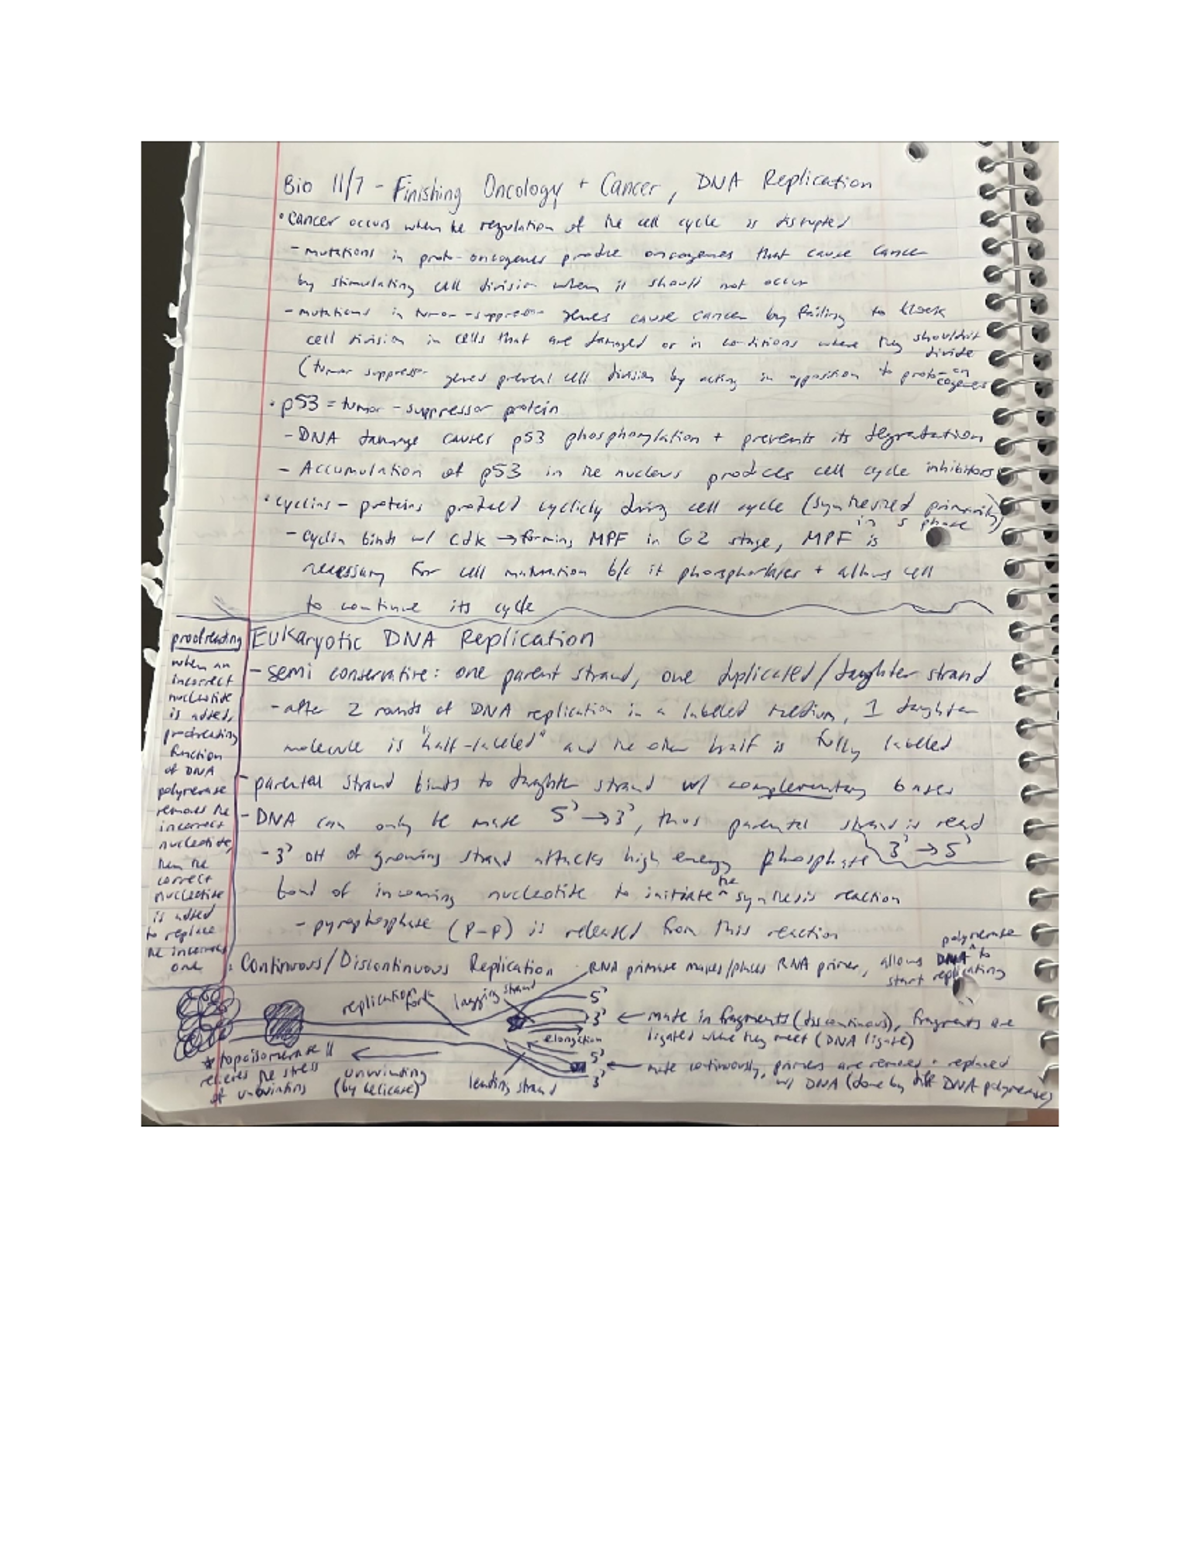 Bio 11/7 - Finishing Oncology + Cancer, DNA Replication
• Cancer occurs when the regulation of the cell cycle is disrupted
- mutations in proto-oncogenes produce oncogenes that cause cancer
by stimulating cell division when it should not occur
- mutations in tumor-suppressor genes cause cancer by failing to block
cell division in cells that are damaged or in conditions where they shouldn't
divide
(tumor suppressor genes prevent cell division by acting in opposition to proto-on
cogenes
• p53 = tumor-suppressor protein
- DNA damage causes p53 phosphorylation + prevents its degredation
- Accumulation of p53 in the nucleus produces cell cycle inhibitors
• cyclins - proteins produced cyclicly during cell cycle (synthesized primarily
in S phase)
- cyclin binds w/ cdk → forming MPF in G2 stage, MPF is
necessary for cell b/c it + allows cell
to continue its cycle
Eukaryotic DNA Replication
- semi conservative: one parent strand, one duplicated/daughter strand
- after 2 rounds of DNA replication in a labelled medium, 1 daughter
molecule is "half-labeled" and the other half is fully labelled
- parental strand binds to daughter strand w/ complementary bases
- DNA can only be made 5' → 3', thus parental strand is read
3' → 5'
- 3' OH of growing strand attacks high energy phosphate
bond of incoming nucleotide to initiate the synthesis reaction
- pyrophosphate (P-P) is released from this reaction
proofreading
when an
incorrect
nucleotide
is added,
proofreading
function
of DNA
polymerase
removes the
incorrect
nucleotide,
then the
correct
nucleotide
is added
to replace
the incorrect
one
• Continuous/Discontinuous Replication
RNA primase makes/places RNA primer, allows DNA polymerase to
start replicating
replication fork
lagging strand
5'
3' ← made in fragments (discontinuous), fragments are
ligated where they meet (DNA ligase)
elongation
5'
3'
← made continuously, primers are removed + replaced
w/ DNA (done by diff DNA polymerase)
leading strand
unwinding
(by helicase)
* topoisomerase II
relieves the stress
of unwinding